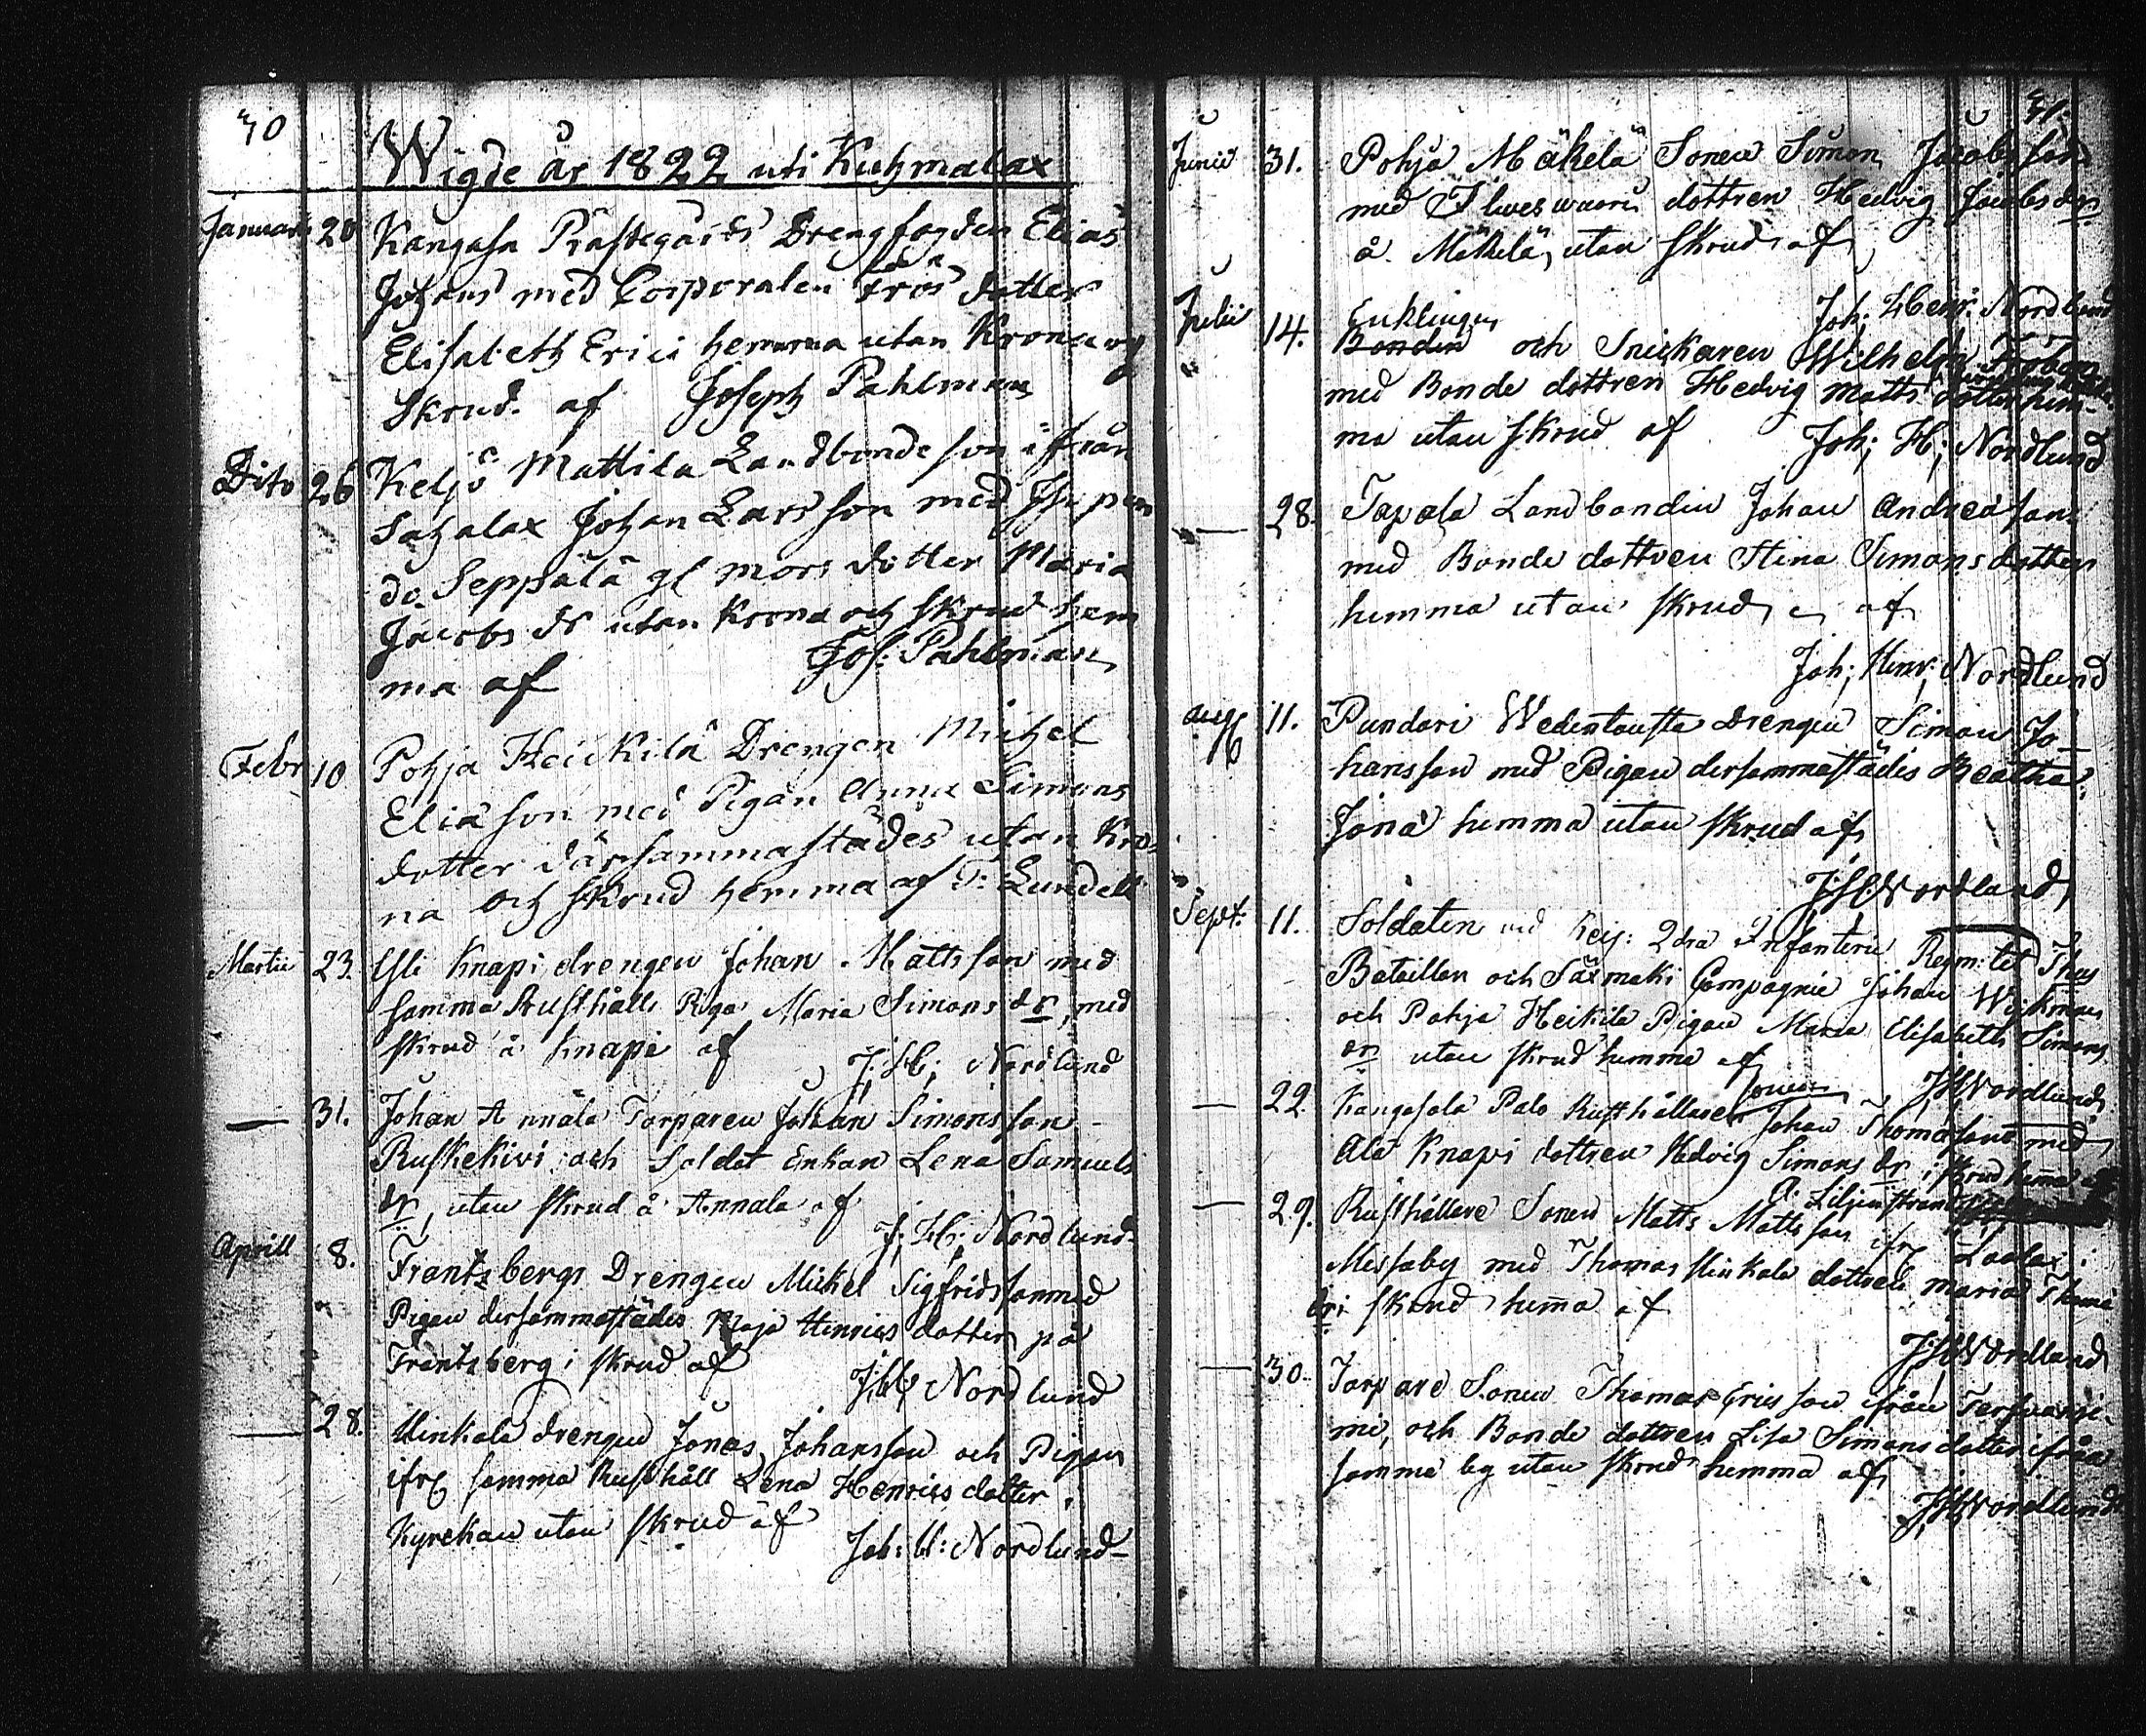 70
Wigde år 1822 uti Kuhmalax
Januarii 20 Kangasa Prästegårds Drengfogden Elias
Johans med Corporalen Frös dotter
Elisabeth Erici hemma utan Krona og
Skrud. af Joseph Pahlman
Dito 26 Keljo Mattila Landbonde son ifrån
Sahalax Johan Larsson med
do. Seppälä gl mors dotter Maria
Jacobs dr utan Krona och skrud hem
ma af Jos: Pahlman
Febr 10 Pohja Heickilä Drengen Michel
Eliason med Pigan Anna Simons
dotter därsammastädes utan Kro
na och skrud hemma af F: Lundell
Martii 23. Knapi drengen Johan Mattsson med
samma Rusthålls Piga Maria Simons dr, med
skrud å Knapi af J: H; Nordlund
— 31. Johan Annala Torparen Johan Simonsson
Ruskekivi och Soldat Enkan Lena Samuels
dr, utan skrud å Annala af
J; H; Nordlund
Aprill 8. Frantsbergs Drengen Mickel Sigfridsson med
Pigan dersammastädes Maja Henrics dotter på
Frantsberg i skrud af
J; H; Nordlund
— 28. Uinkala drengen Jonas Johansson och Pigan
ifrg samma Rusthåll Lena Henrics dotter i
Kyrckan utan skrud af
Joh: H: Nordlund
71.
Junii 31. Pohja Mäkelä Sonen Simon Jacobsson
med Ilweswuori dottren Hedvig Jacobs dr
å Mäkelä, utan skrud af
Joh; Henr: Nordlund
Julii 14. Enklingen
Bonden och Snickaren Wilhelm
med Bonde dottren Hedvig Matts dotter hem-
ma utan skrud af Joh; H; Nordlund
— 28. Tapala Landbonden Johan Andreasson
med Bonde dottren Stina Simons dotter
hemma utan skrud af
Joh; Henr; Nordlund
Aug 11. Pundari Wedentausta drengen Simon Jo-
hansson med Pigan dersammastädes Beatha
Jona hemma utan skrud af
J; H; Nordlund
Sept: 11. Soldaten vid Keis: 2dra Infanterie Regm:tet
Bataillon och Säxmäki Compagnie Johan Wickman
och Pohja Heikilä Pigan Maria Elisabeth Simons
dr utan skrud hemma af
J; H; Nordlund
— 22. Kangasala Palo Rusthållaren sonen Johan Thomasson med
Ala Knapi dottren Hedvig Simons dr i skrud hemma af
A: Liljenstrand
— 29. Rusthållare Sonen Matts Mattsson ifrg i
Messuby med Thomas Uinkala dottren Maria Thoma
dr i skrud hemma af
J; H; Nordlund
— 30. Torpare Sonen Thomas Ericsson ifrån
mi, och Bonde dottren Lisa Simons dotter ifrån
samma by utan skrud hemma af
J; H; Nordlund